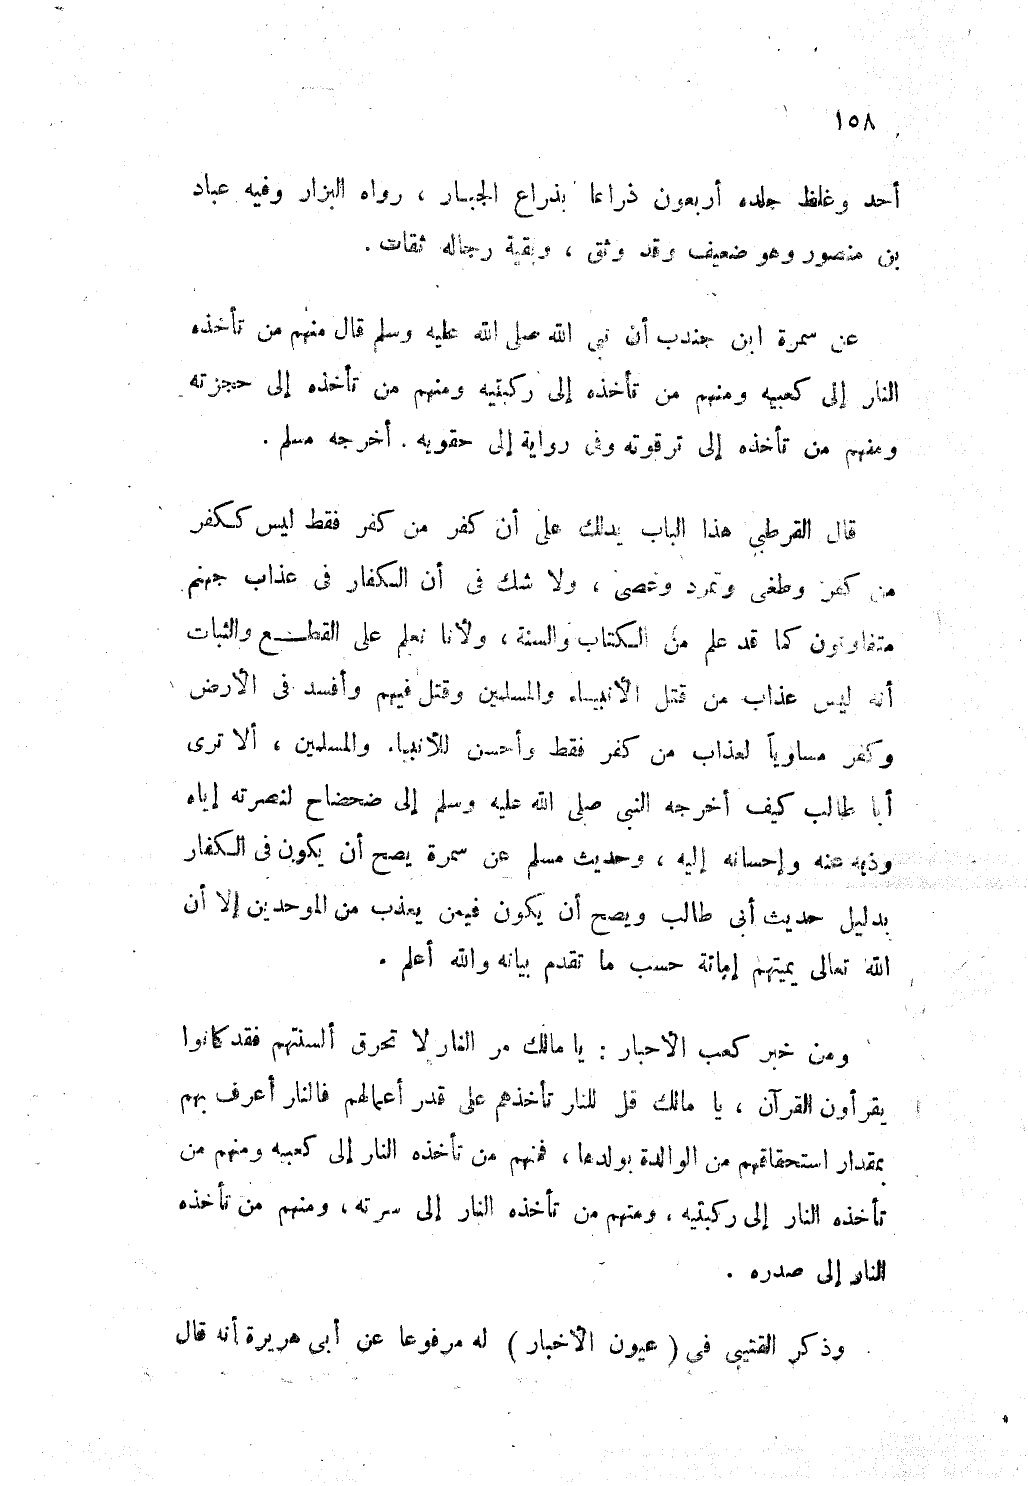 ١٥٨
أحد وغلظ جلده أربعون ذراعا بذراع الجبار ، رواه البزار وفيه عباد
بن منصور وهو ضعيف وقد وثق ، وبقية رجاله ثقات .
عن سمرة ابن جندب أن نبي الله صلى الله عليه وسلم قال منهم من تأخذه
النار إلى كعبيه ومنهم من تأخذه إلى ركبتيه ومنهم من تأخذه إلى حجزته
ومنهم من تأخذه إلى ترقوته وفى رواية إلى حقويه . أخرجه مسلم .
قال القرطبي هذا الباب يدلك على أن كفر من كفر فقط ليس ككفر
من كفر وطغى وتمرد وعصى ، ولا شك فى أن الكفار فى عذاب جهنم
متفاوتون كما قد علم من الكتاب والسنة ، ولأنا نعلم على القطع والثبات
أنه ليس عذاب من قتل الأنبياء والمسلمين وقتل فيهم وأفسد فى الأرض
وكفر مساوياً لعذاب من كفر فقط وأحسن للأنبياء والمسلمين ، ألا ترى
أبا طالب كيف أخرجه النبى صلى الله عليه وسلم إلى ضحضاح لنصرته إياه
وذبه عنه وإحسانه إليه ، وحديث مسلم عن سمرة يصح أن يكون فى الكفار
بدليل حديث أبى طالب ويصح أن يكون فيمن يعذب من الموحدين إلا أن
الله تعالى يميتهم إماتة حسب ما تقدم بيانه والله أعلم .
ومن خبر كعب الأحبار : يا مالك مر النار لا تحرق ألسنتهم فقد كانوا
يقرأون القرآن ، يا مالك قل للنار تأخذهم على قدر أعمالهم فالنار أعرف بهم
بمقدار استحقاقهم من الوالدة بولدها ، فمنهم من تأخذه النار إلى كعبيه ومنهم من
تأخذه النار إلى ركبتيه ، ومنهم من تأخذه النار إلى سرته ، ومنهم من تأخذه
النار إلى صدره .
وذكر القتيبي في ( عيون الأخبار ) له مرفوعا عن أبى هريرة أنه قال